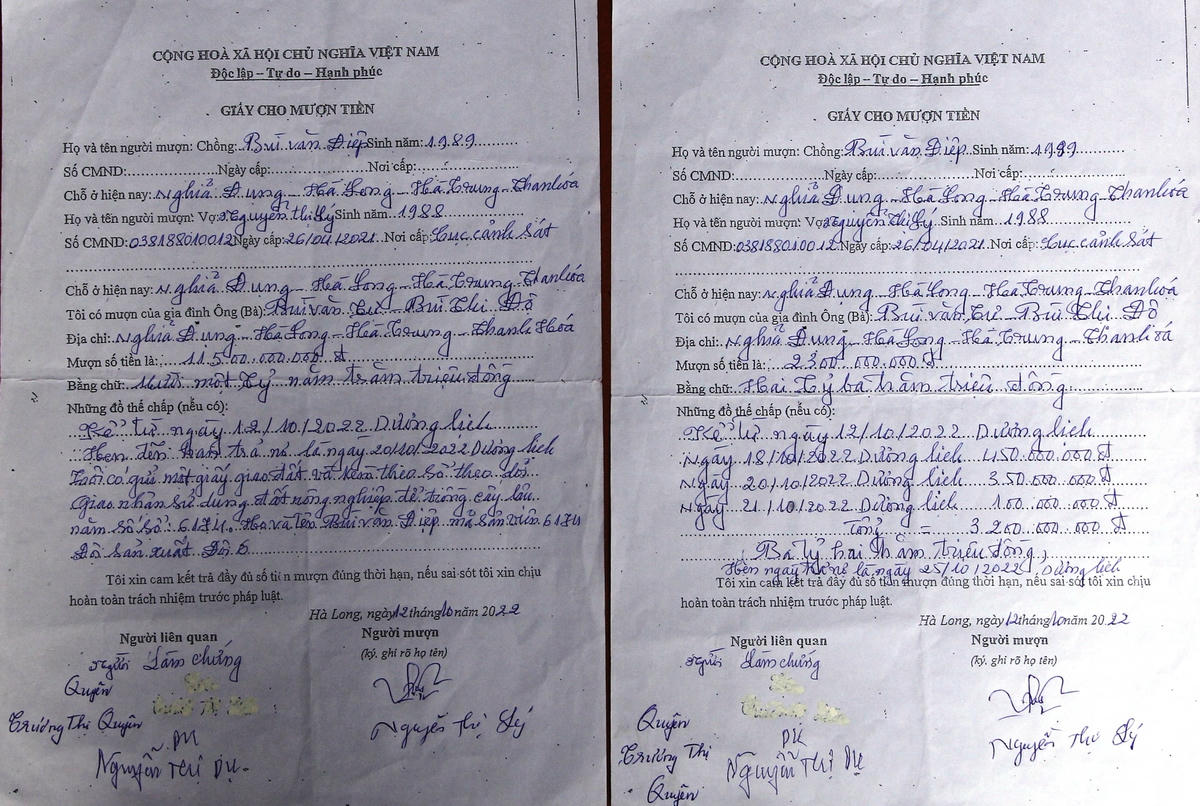 CỘNG HOÀ XÃ HỘI CHỦ NGHĨA VIỆT NAM
Độc lập – Tự do – Hạnh phúc
GIẤY CHO MƯỢN TIỀN
Họ và tên người mượn: Chồng: Bùi văn Điệp Sinh năm: 1989
Số CMND: Ngày cấp: Nơi cấp:
Chỗ ở hiện nay: Nghĩa Đụng - Hà Long - Hà Trung - Thanh hóa
Họ và tên người mượn: Vợ: Nguyễn thị Lý Sinh năm 1988
Số CMND: 038188010012 Ngày cấp: 26/04/2021 Nơi cấp: Cục cảnh sát
Chỗ ở hiện nay: Nghĩa Đụng - Hà Long - Hà Trung - Thanh hóa
Tôi có mượn của gia đình Ông (Bà): Bùi văn Cư - Bùi Thị Đô
Địa chỉ: Nghĩa Đụng - Hà Long - Hà Trung - Thanh Hóa
Mượn số tiền là: 11.500.000.000 đ
Bằng chữ: Mười một Tỷ năm trăm triệu đồng
Những đồ thế chấp (nếu có):
Kể từ ngày 12/10/2022 Dương lịch
Hẹn đến hạn trả nợ là ngày 20/10/2022 Dương lịch
Tôi có gửi một giấy giao đất và kèm theo sổ theo dõi
Giao nhận sử dụng đất nông nghiệp để trồng cây lâu
năm số sổ: 6174. Họ và Tên Bùi văn Điệp mã sản viên 6174
Đội sản xuất Đội 6
Tôi xin cam kết trả đầy đủ số tiền mượn đúng thời hạn, nếu sai sót tôi xin chịu
hoàn toàn trách nhiệm trước pháp luật.
Hà Long, ngày 12 tháng 10 năm 2022
Người liên quan Người mượn
người Làm chứng (ký, ghi rõ họ tên)
Quyên
Trương Thị Quyên Nguyễn Thị Lý
DU
Nguyễn Thị Dư
CỘNG HOÀ XÃ HỘI CHỦ NGHĨA VIỆT NAM
Độc lập – Tự do – Hạnh phúc
GIẤY CHO MƯỢN TIỀN
Họ và tên người mượn: Chồng: Bùi văn Điệp Sinh năm: 1989
Số CMND: Ngày cấp: Nơi cấp:
Chỗ ở hiện nay: Nghĩa Đụng - Hà Long - Hà Trung - Thanh hóa
Họ và tên người mượn: Vợ: Nguyễn Thị Lý Sinh năm: 1988
Số CMND: 038188010012 Ngày cấp: 26/04/2021 Nơi cấp: Cục cảnh sát
Chỗ ở hiện nay: Nghĩa Đụng - Hà Long - Hà Trung - Thanh hóa
Tôi có mượn của gia đình Ông (Bà): Bùi văn Cư - Bùi Thị Đô
Địa chỉ: Nghĩa Đụng - Hà Long - Hà Trung - Thanh hóa
Mượn số tiền là: 2300.000.000 đ
Bằng chữ: Hai Tỷ ba trăm triệu đồng
Những đồ thế chấp (nếu có):
Kể từ ngày 12/10/2022 Dương lịch
Ngày 18/10/2022 Dương lịch 450.000.000 đ
Ngày 20/10/2022 Dương lịch 350.000.000 đ
Ngày 21/10/2022 Dương lịch 100.000.000 đ
Tổng = 3200.000.000 đ
(Ba tỷ hai trăm triệu đồng)
Hẹn ngày trả nợ là ngày 25/10/2022 Dương lịch
Tôi xin cam kết trả đầy đủ số tiền mượn đúng thời hạn, nếu sai sót tôi xin chịu
hoàn toàn trách nhiệm trước pháp luật.
Hà Long, ngày 12 tháng 10 năm 2022
Người liên quan Người mượn
người Làm chứng (ký, ghi rõ họ tên)
Quyên
Trương Thị Quyên
DU
Nguyễn Thị Dư
Nguyễn Thị Lý